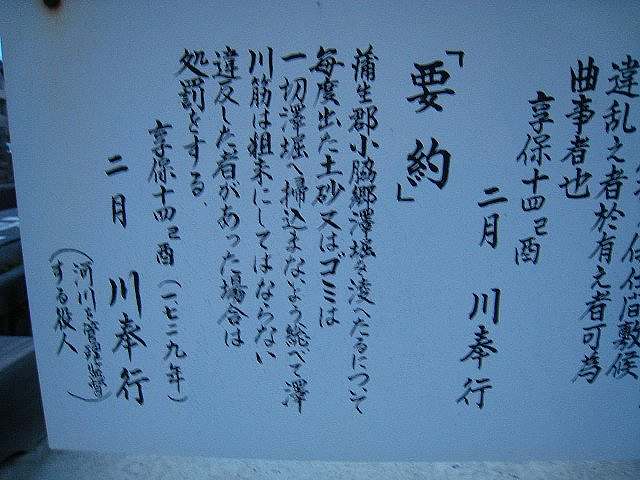 違乱之者於有之者可為
曲事者也
享保十四己酉
二月 川奉行
「要約」
蒲生郡小脇郷澤堀を浚へたるについて
毎度出た土砂又はゴミは
一切澤堀へ掃込まないよう総べて澤
川筋は粗末にしてはならない
違反した者があった場合は
処罰をする。
享保十四己酉(一七二九年)
二月 川奉行
(河川を管理監督
する役人)